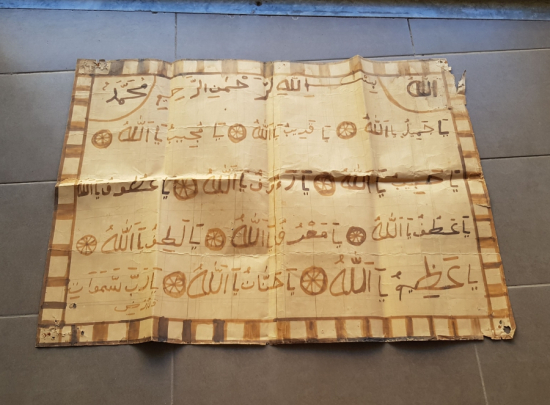 الله بسم الله الرحمن الرحيم محمد
يا جميل يا الله يا قريب يا الله يا مجيب يا الله
يا حبيب يا الله يا رؤف يا الله يا عطوف يا الله
يا الله يا معروف يا الله يا لطيف يا الله
يا عظيم يا الله يا حنان يا الله يا رب